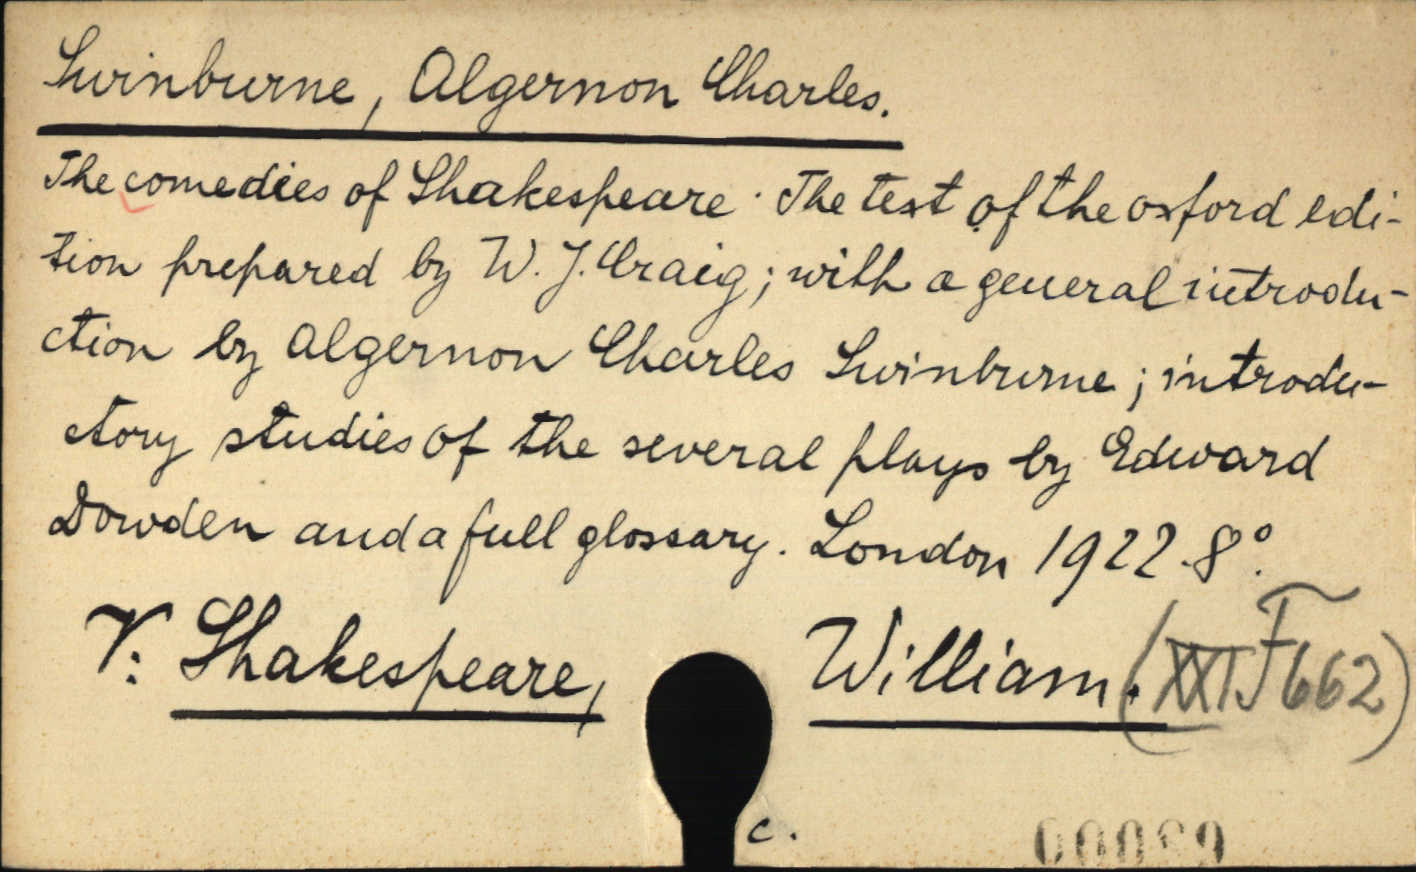 Swinburne, Algernon Charles.
The comedies of Shakespeare. The text of the oxford edi-
tion prepared by W. J. Craig; with a general introdu-
ction by Algernon Charles Swinburne; introdu-
ctory studies of the several plays by Edward
Dowden and a full glossary. London 1922. 8°.
V: Shakespeare, William. (XXI F 662)
c.